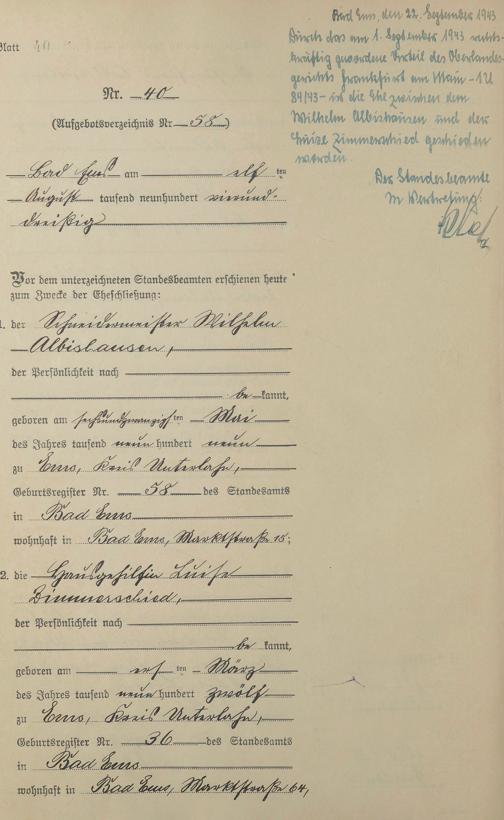 Blatt 40
Nr. 40
(Aufgebotsverzeichnis Nr. 55)
Bad Ems am elf ten
August tausend neunhundert vierund-
dreißig
Vor dem unterzeichneten Standesbeamten erschienen heute
zum Zwecke der Eheschließung:
1. der Schneidermeister Wilhelm
Albishausen,
der Persönlichkeit nach
be kannt,
geboren am sechsundzwanzigsten Mai
des Jahres tausend neun hundert neun
zu Ems, Kreis Unterlahn,
Geburtsregister Nr. 58 des Standesamts
in Bad Ems
wohnhaft in Bad Ems, Marktstraße 15;
2. die Hausgehilfin Luise
Zimmerschied,
der Persönlichkeit nach
be kannt,
geboren am ers ten März
des Jahres tausend neun hundert zwölf
zu Ems, Kreis Unterlahn,
Geburtsregister Nr. 36 des Standesamts
in Bad Ems
wohnhaft in Bad Ems, Marktstraße 64,
Bad Ems, den 22. September 1943
Durch das am 1. September 1943 rechts-
kräftig gewordene Urteil des Oberlandes-
gerichts Frankfurt am Main - 1U
84/43 - ist die Ehe zwischen dem
Wilhelm Albishausen und der
Luise Zimmerschied geschieden
worden.
Der Standesbeamte
In Vertretung: